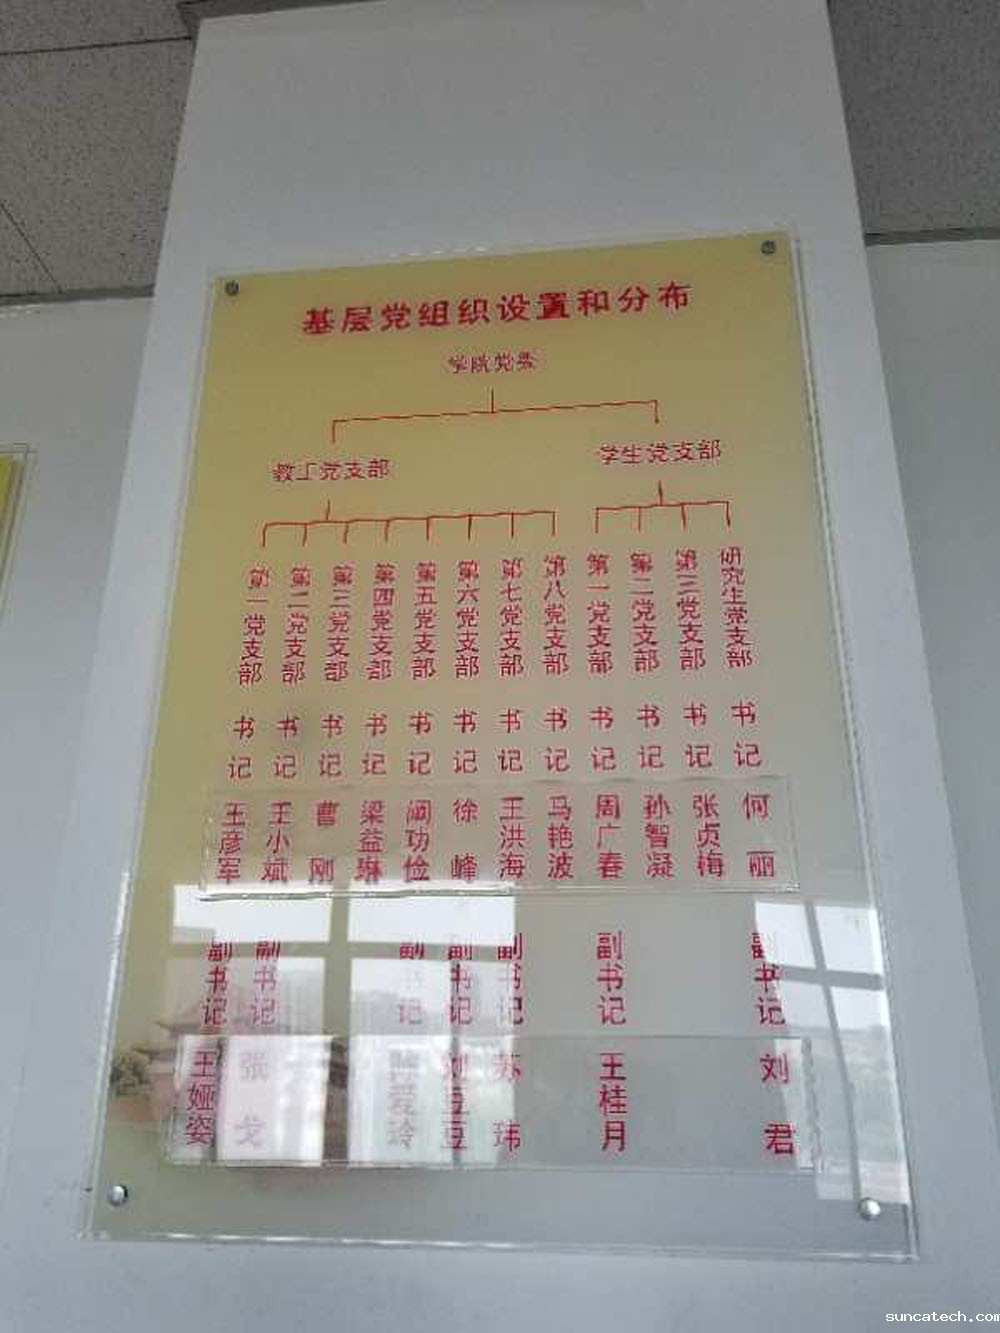 基层党组织设置和分布
学院党委
教工党支部
学生党支部
第一党支部
第二党支部
第三党支部
第四党支部
第五党支部
第六党支部
第七党支部
第八党支部
第一党支部
第二党支部
第三党支部
研究生党支部
书记
书记
书记
书记
书记
书记
书记
书记
书记
书记
书记
书记
王彦军
王小斌
曹刚
梁益琳
阚功俭
徐峰
王洪海
马艳波
周广春
孙智凝
张贞梅
何丽
副书记
副书记
副书记
副书记
副书记
副书记
副书记
王娅姿
张戈
爱玲
刘豆豆
苏玮
王桂月
刘君
suncatech.com